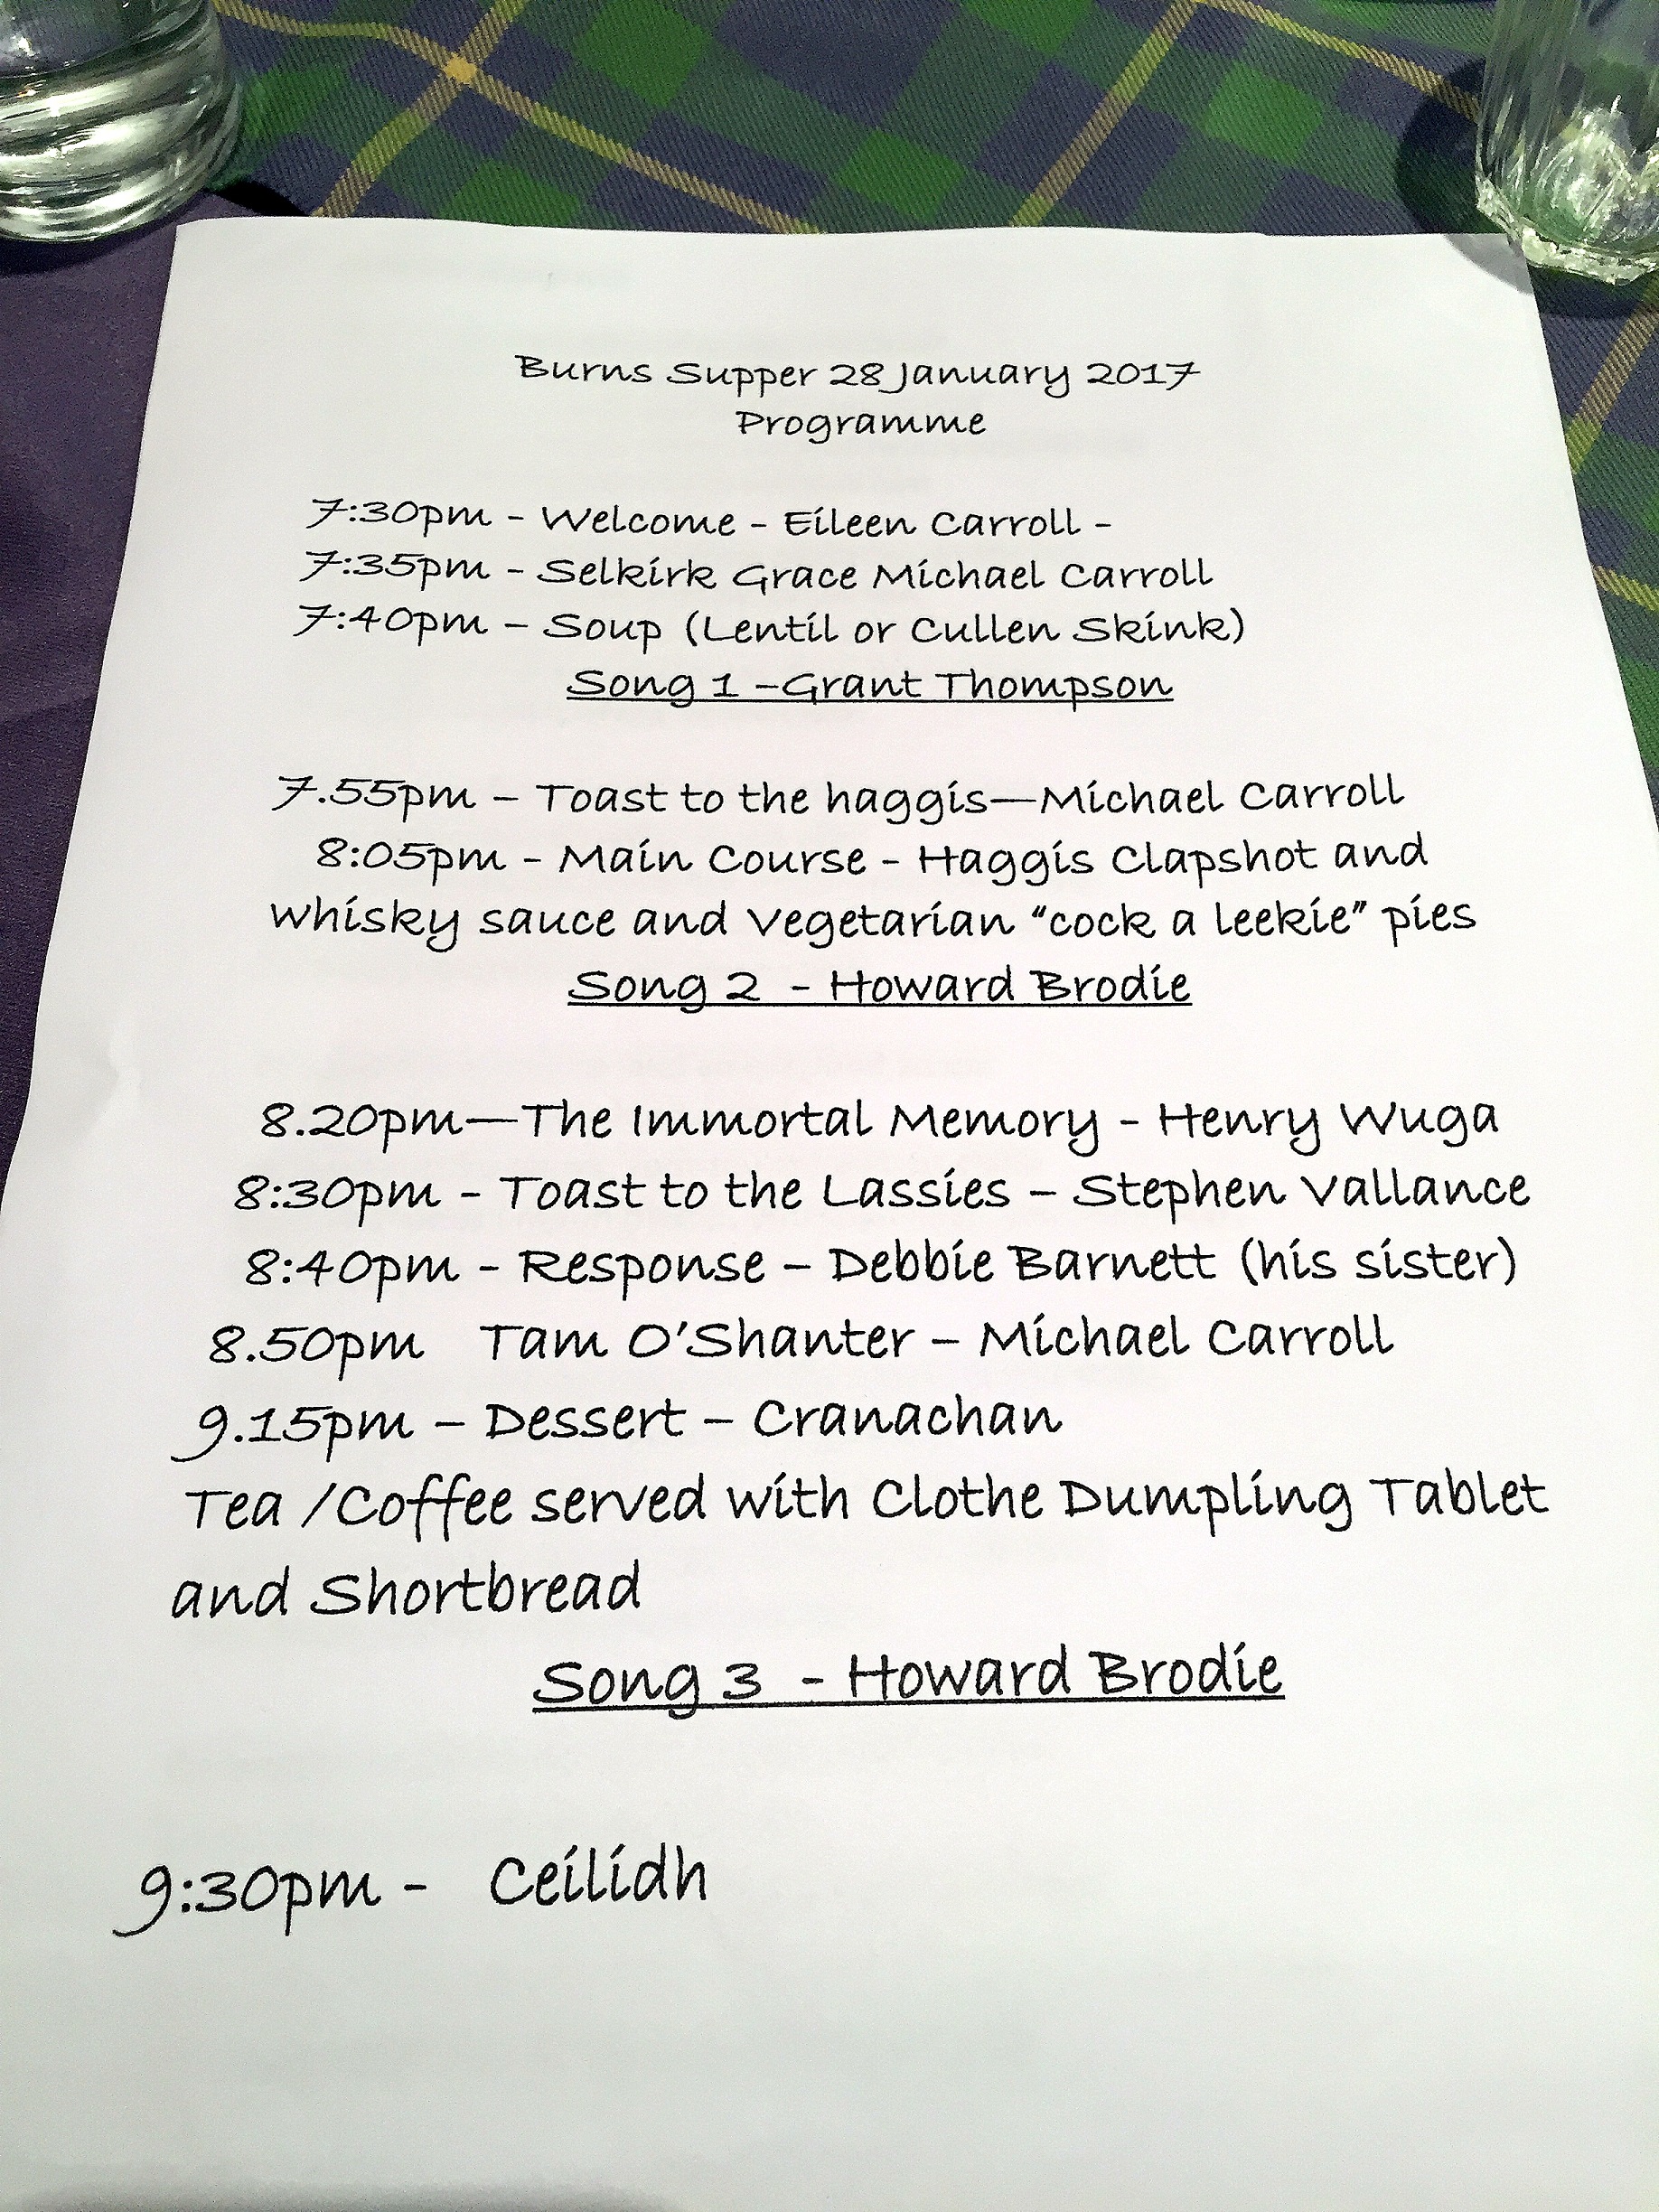 Burns Supper 28 January 2017
Programme
7:30pm - Welcome - Eileen Carroll -
7:35pm - Selkirk Grace Michael Carroll
7:40pm – Soup (Lentil or Cullen Skink)
Song 1 –Grant Thompson
7.55pm – Toast to the haggis—Michael Carroll
8:05pm - Main Course - Haggis Clapshot and
whisky sauce and Vegetarian “cock a leekie” pies
Song 2 - Howard Brodie
8.20pm—The Immortal Memory - Henry Wuga
8:30pm - Toast to the Lassies – Stephen Vallance
8:40pm - Response – Debbie Barnett (his sister)
8.50pm Tam O’Shanter – Michael Carroll
9.15pm – Dessert – Cranachan
Tea /Coffee served with Clothe Dumpling Tablet
and Shortbread
Song 3 - Howard Brodie
9:30pm - Ceilidh